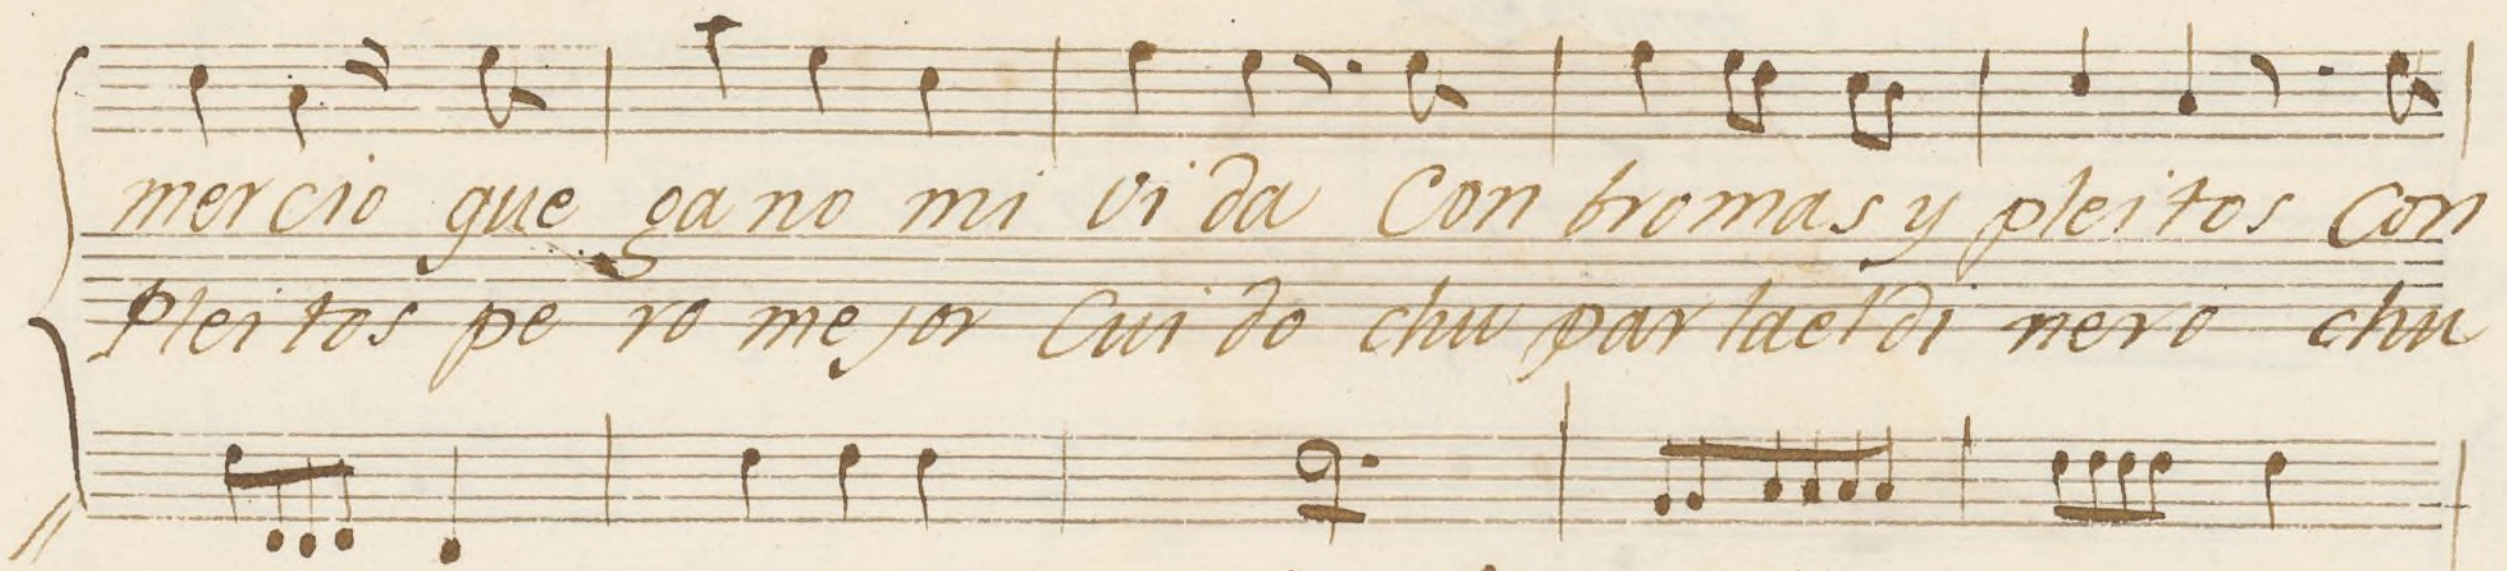 mercio que gano mi vida Con bromas y pleitos Con
Pleitos pero mejor Cuido chuparlaeldinero chu